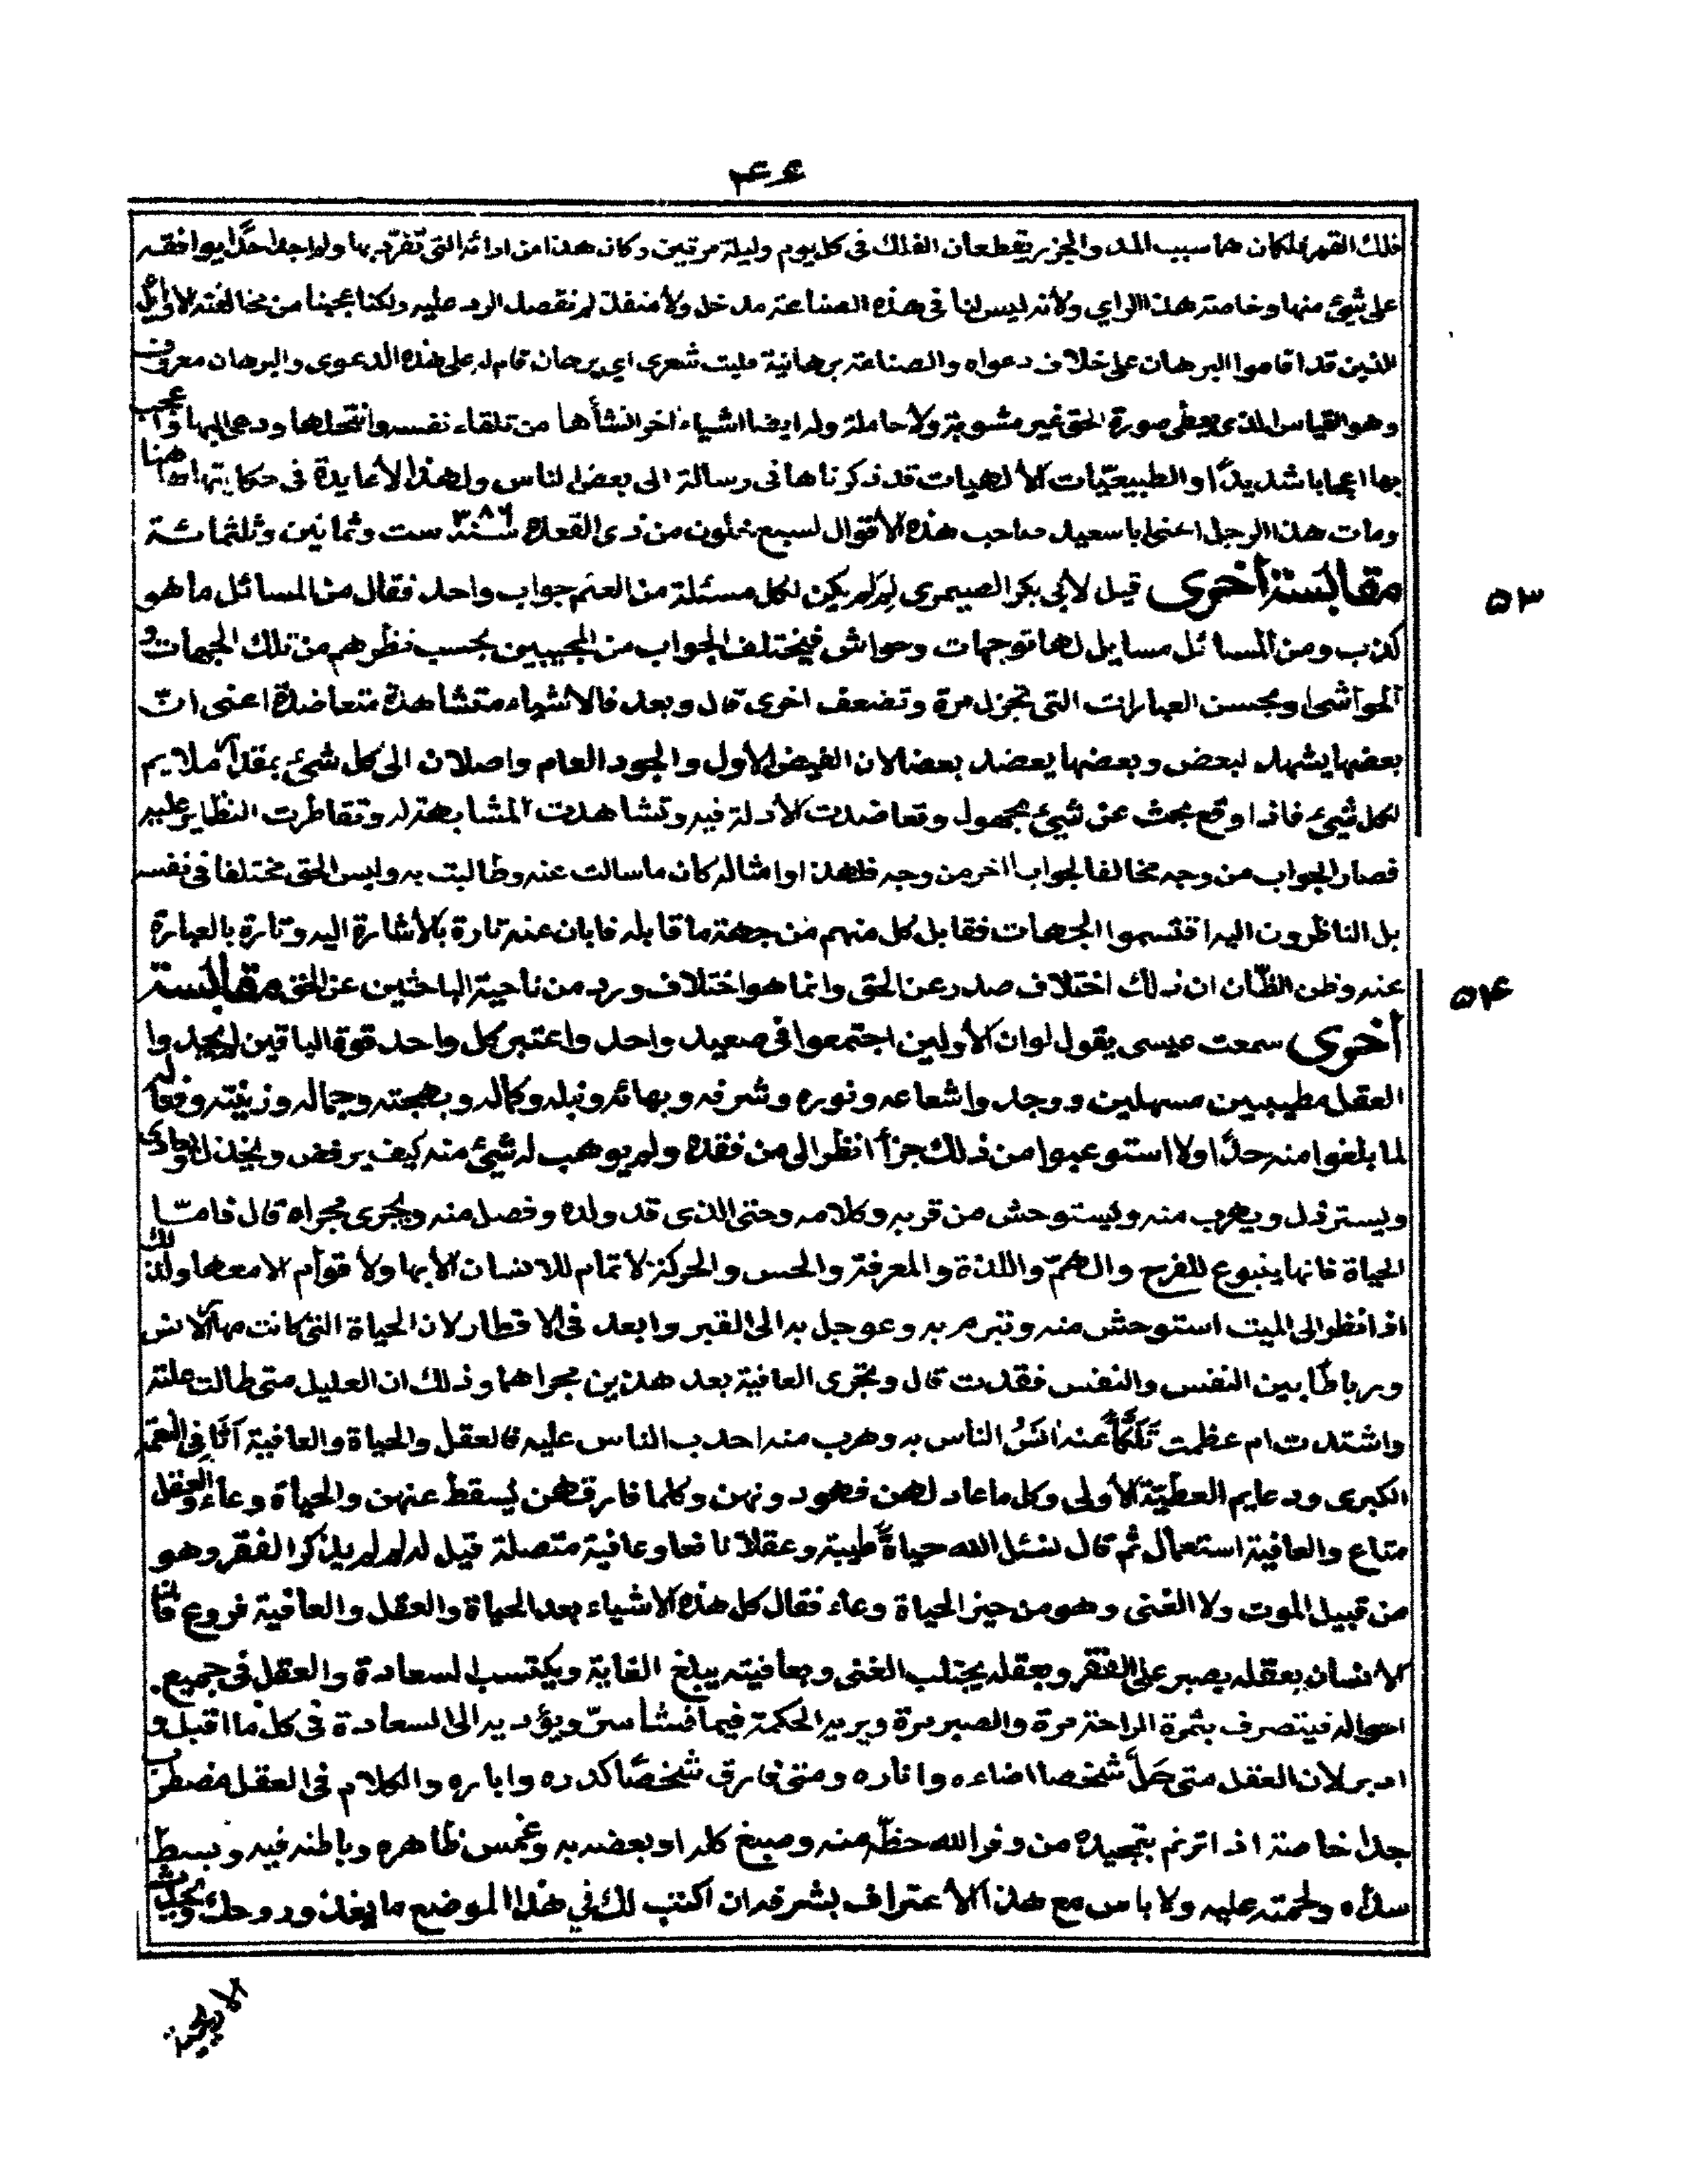 ٤٤
فلك القمر ملكان هما سبب المد والجزر يقطعان الفلك في كل يوم وليلة مرتين وكان هذا من ارائه التى تفرّد بها ولم اجد احدًا يوافقه
على شئ منها وخاصة هذا الراي ولأنه ليس لنا في هذه الصناعة مدخل ولا منفذ لم نقصد الرد عليه ولكنا عجبنا من مخالفته الاوائل
الذين قد اقاموا البرهان على خلاف دعواه والصناعة برهانية فليت شعري اي برهان قام له على هذه الدعوى والبرهان معروف
وهو القياس الذي يعطي صورة الحق غير مشوبة ولا حاملة وله ايضا اشياء اخر انشأها من تلقاء نفسه وانتحلها ودعى اليها وأعجب
بها اعجابا شديدًا والطبيعيّات الألهيات قد ذكرناها في رسالة الى بعض الناس ولهذا لا عايدة في حكايتها ههنا
ومات هذا الرجل اعنى ابا سعيد صاحب هذه الأقوال لسبع خلون من ذى القعدة سنة ٣٨٦ ست وثمانين وثلثمائة
مقابسة أخرى قيل لأبي بكر الصيمري لم لم يكن لكل مسئلة من العلم جواب واحد فقال من المسائل ما هو
كذب ومن المسائل مسايل لها توجهات وحواش فيختلف الجواب من المجيبين بحسب نظرهم من تلك الجهات و
الحواشى وبحسن العبارات التي تجزل مرة وتضعف اخرى قال وبعد فالاشياء متشاهدة متعاضدة اعنى انّ
بعضها يشهد لبعض وبعضها يعضد بعضا لان الفيض الأول والجود العام واصلان الى كل شئ بمقدار ملايم
لكل شئ فاذا وقع بحث عن شئ مجهول وتعاضدت الأدلة فيه وتشاهدت المشابهة له وتقاطرت النظاير عليه
فصار الجواب من وجه مخالفا لجواب اخر من وجه فلهذا وامثاله كان ما سالت عنه وطالبت به وليس الحق مختلفا في نفسه
بل الناظرون اليه اقتسموا الجهات فقابل كل منهم من جهة ما قابله فابان عنه تارة بالأشارة اليه وتارة بالعبارة
عنه وظن الظّان ان ذلك اختلاف صدر عن الحق وانما هو اختلاف ورد من ناحية الباحثين عن الحق مقابسة
أخرى سمعت عيسى يقول لو ان الأولين اجتمعوا في صعيد واحد واعتبر كل واحد قوة الباقين لم يجدوا
العقل مطيبين مسهلين ووجدوا شعاعه ونوره وشرفه وبهائه ونبله وكماله وبهجته وجماله وزينته وفعاله
لما بلغوا منه حدًا ولا استوعبوا من ذلك جزأ انظر الى من فقده ولم يوهب له شئ منه كيف يرفض ويخذل ويعادى
ويسترذل ويهرب منه ويستوحش من قربه وكلامه وحتى الذى قد ولده وفصل منه ويجرى مجراه قال فامّا
الحياة فانها ينبوع للفرح والهمّ واللذة والمعرفة والحس والحركة لا تمام للانسان الأبها ولا قوام الا معها ولذلك
اذا نظر الى الميت استوحش منه وتبرم به وعوجل به الى القبر وابعد في الاقطار لان الحياة التى كانت بها الانس
ورباطًا بين النفس والنفس فقدت قال وتجرى العافية بعد هذين مجراهما وذلك ان العليل متى طالت علته
واشتدت ام عظمت تلكّأ عنه انسُ الناس به وهرب منه احدب الناس عليه فالعقل والحياة والعافية أثافي النعمة
الكبرى ودعايم العطيّة الأولى وكل ما عاد لهن فهو دونهن وكلما فارقهن يسقط عنهن والحياة وعاء والعقل
متاع والعافية استعمال ثم قال نسئل الله حياةً طيبة وعقلا نافعا وعافية متصلة قيل له لم لم يذكر الفقر وهو
من قبيل الموت ولا الغنى وهو من حيز الحياة وعاء فقال كل هذه الاشياء بعد الحياة والعقل والعافية فروع فان
الانسان بعقله يصبر على الفقر وبعقله يجتلب الغنى وبعافيته يبلغ الغاية ويكتسب السعادة والعقل في جميع
احواله فيتصرف بثمرة الراحة مرة والصبر مرة ويريه الحكمة فيما فشا سرّ ويؤديه الى السعادة في كل ما اقبل و
ادبر لان العقل متى حَلَّ شخصا اضاءه واناره ومتى فارق شخصًا كدره واباره والكلام في العقل مضطرب
جدا خاصة اذا ترنم بتمجيده من وفر الله حظّه منه وصبغ كله او بعضه به وغمس ظاهره وباطنه فيه وبسط
سداه ولحمته عليه ولا باس مع هذا الأعتراف بشرفه ان اكتب لك في هذا الموضع ما يغذو روحك
٥٣
٥٤
الاريحية